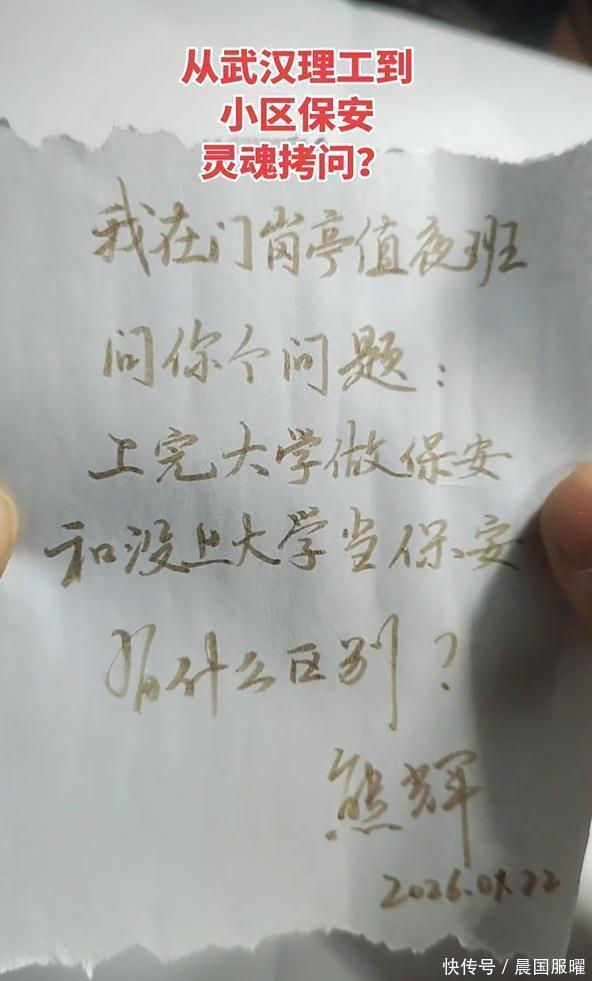 从武汉理工到
小区保安
灵魂拷问？
我在门岗亭值夜班
问你个问题：
上完大学做保安
和没上大学当保安
有什么区别？
熊辉
2026.01.22
快传号/晨国服曜